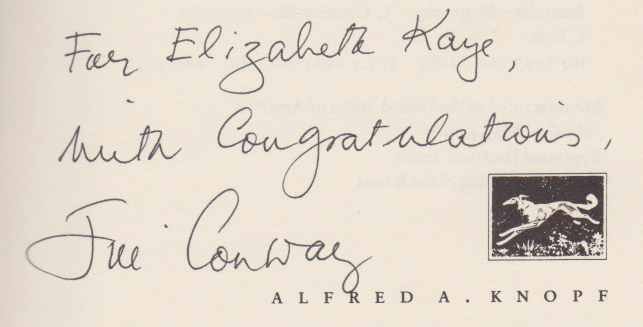 For Elizabeth Kaye,
with Congratulations,
Jill Conway
ALFRED A. KNOPF